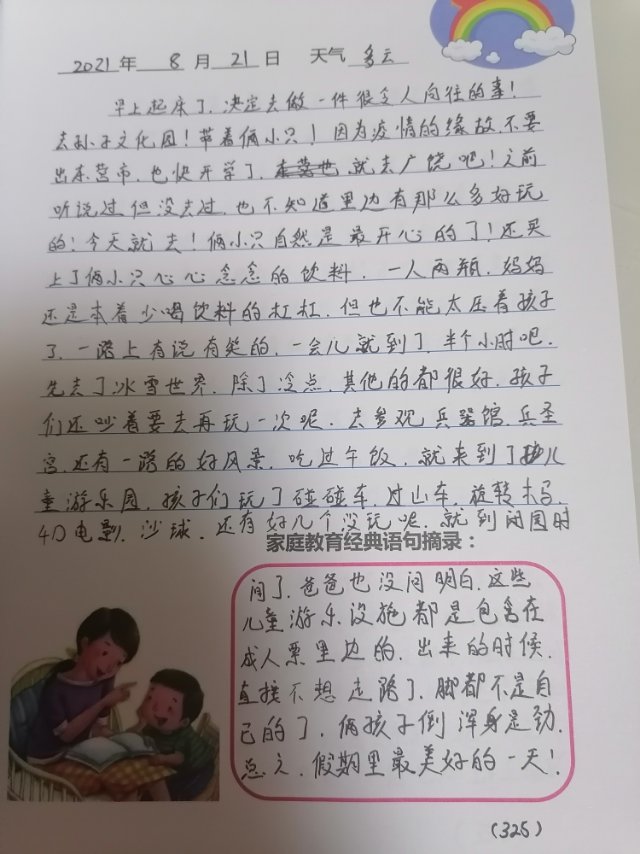 2021年 8月21日 天气 多云
早上起床了,决定去做一件很令人向往的事!
去孙子文化园!带着俩小只!因为疫情的缘故,不要
出东营市,也快开学了,就去广饶吧!之前
听说过但没去过,也不知道里边有那么多好玩
的!今天就去!俩小只自然是最开心的了!还买
上了俩小只心心念念的饮料,一人两瓶,妈妈
还是本着少喝饮料的杠杠,但也不能太压着孩子
了,一路上有说有笑的,一会儿就到了,半个小时吧.
先去了冰雪世界,除了冷点,其他的都很好,孩子
们还吵着要去再玩一次呢,去参观兵器馆,兵圣
宫,还有一路的好风景,吃过午饭,就来到了儿
童游乐园,孩子们玩了碰碰车,过山车,旋转木马,
4D电影,沙球,还有好几个没玩呢,就到闭园时
家庭教育经典语句摘录:
间了,爸爸也没问明白,这些
儿童游乐设施都是包含在
成人票里边的,出来的时候,
直接不想走路了,脚都不是自
己的了,俩孩子倒浑身是劲,
总之,假期里最美好的一天!
(325)